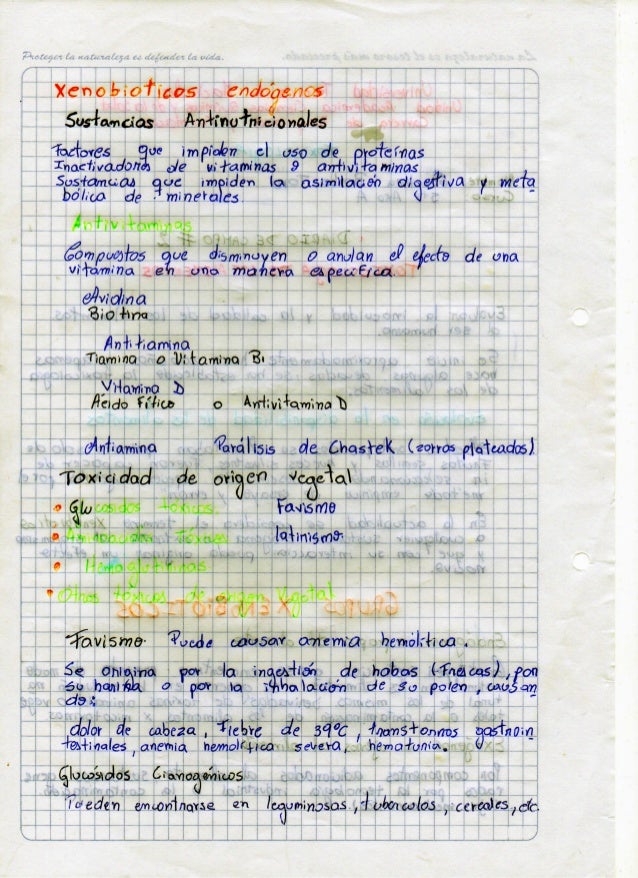 Proteger la naturaleza es defender la vida.
Xenobioticos endógenos
Sustancias Antinutricionales
Factores que impiden el uso de proteínas
Inactivadores de vitaminas o antivitaminas
Sustancias que impiden la asimilación digestiva y meta
bólica de minerales.
Antivitaminas
Compuestos que disminuyen o anulan el efecto de una
vitamina en una manera especifica.
Avidina
Biotina
Antitiamina
Tiamina o Vitamina B1
Vitamina D
Ácido Fítico o Antivitamina D
Antiamina Parálisis de Chastek (zorros plateados)
Toxicidad de origen vegetal
• Glucosidos tóxicos Favismo
• Aminoacidos Tóxicos latinismo
• Hemoglutininas
• Otros tóxicos de origen Vegetal
Favismo. Puede causar anemia hemolítica.
Se origina por la ingestión de habas (Frescas), por
su harina o por la inhalación de su polen, causan
do:
dolor de cabeza, fiebre de 39°C, transtornos gastroin
testinales, anemia hemolítica severa, hematuria.
Glucósidos Cianogénicos
Pueden encontrarse en leguminosas, tuberculos, cereales, etc.